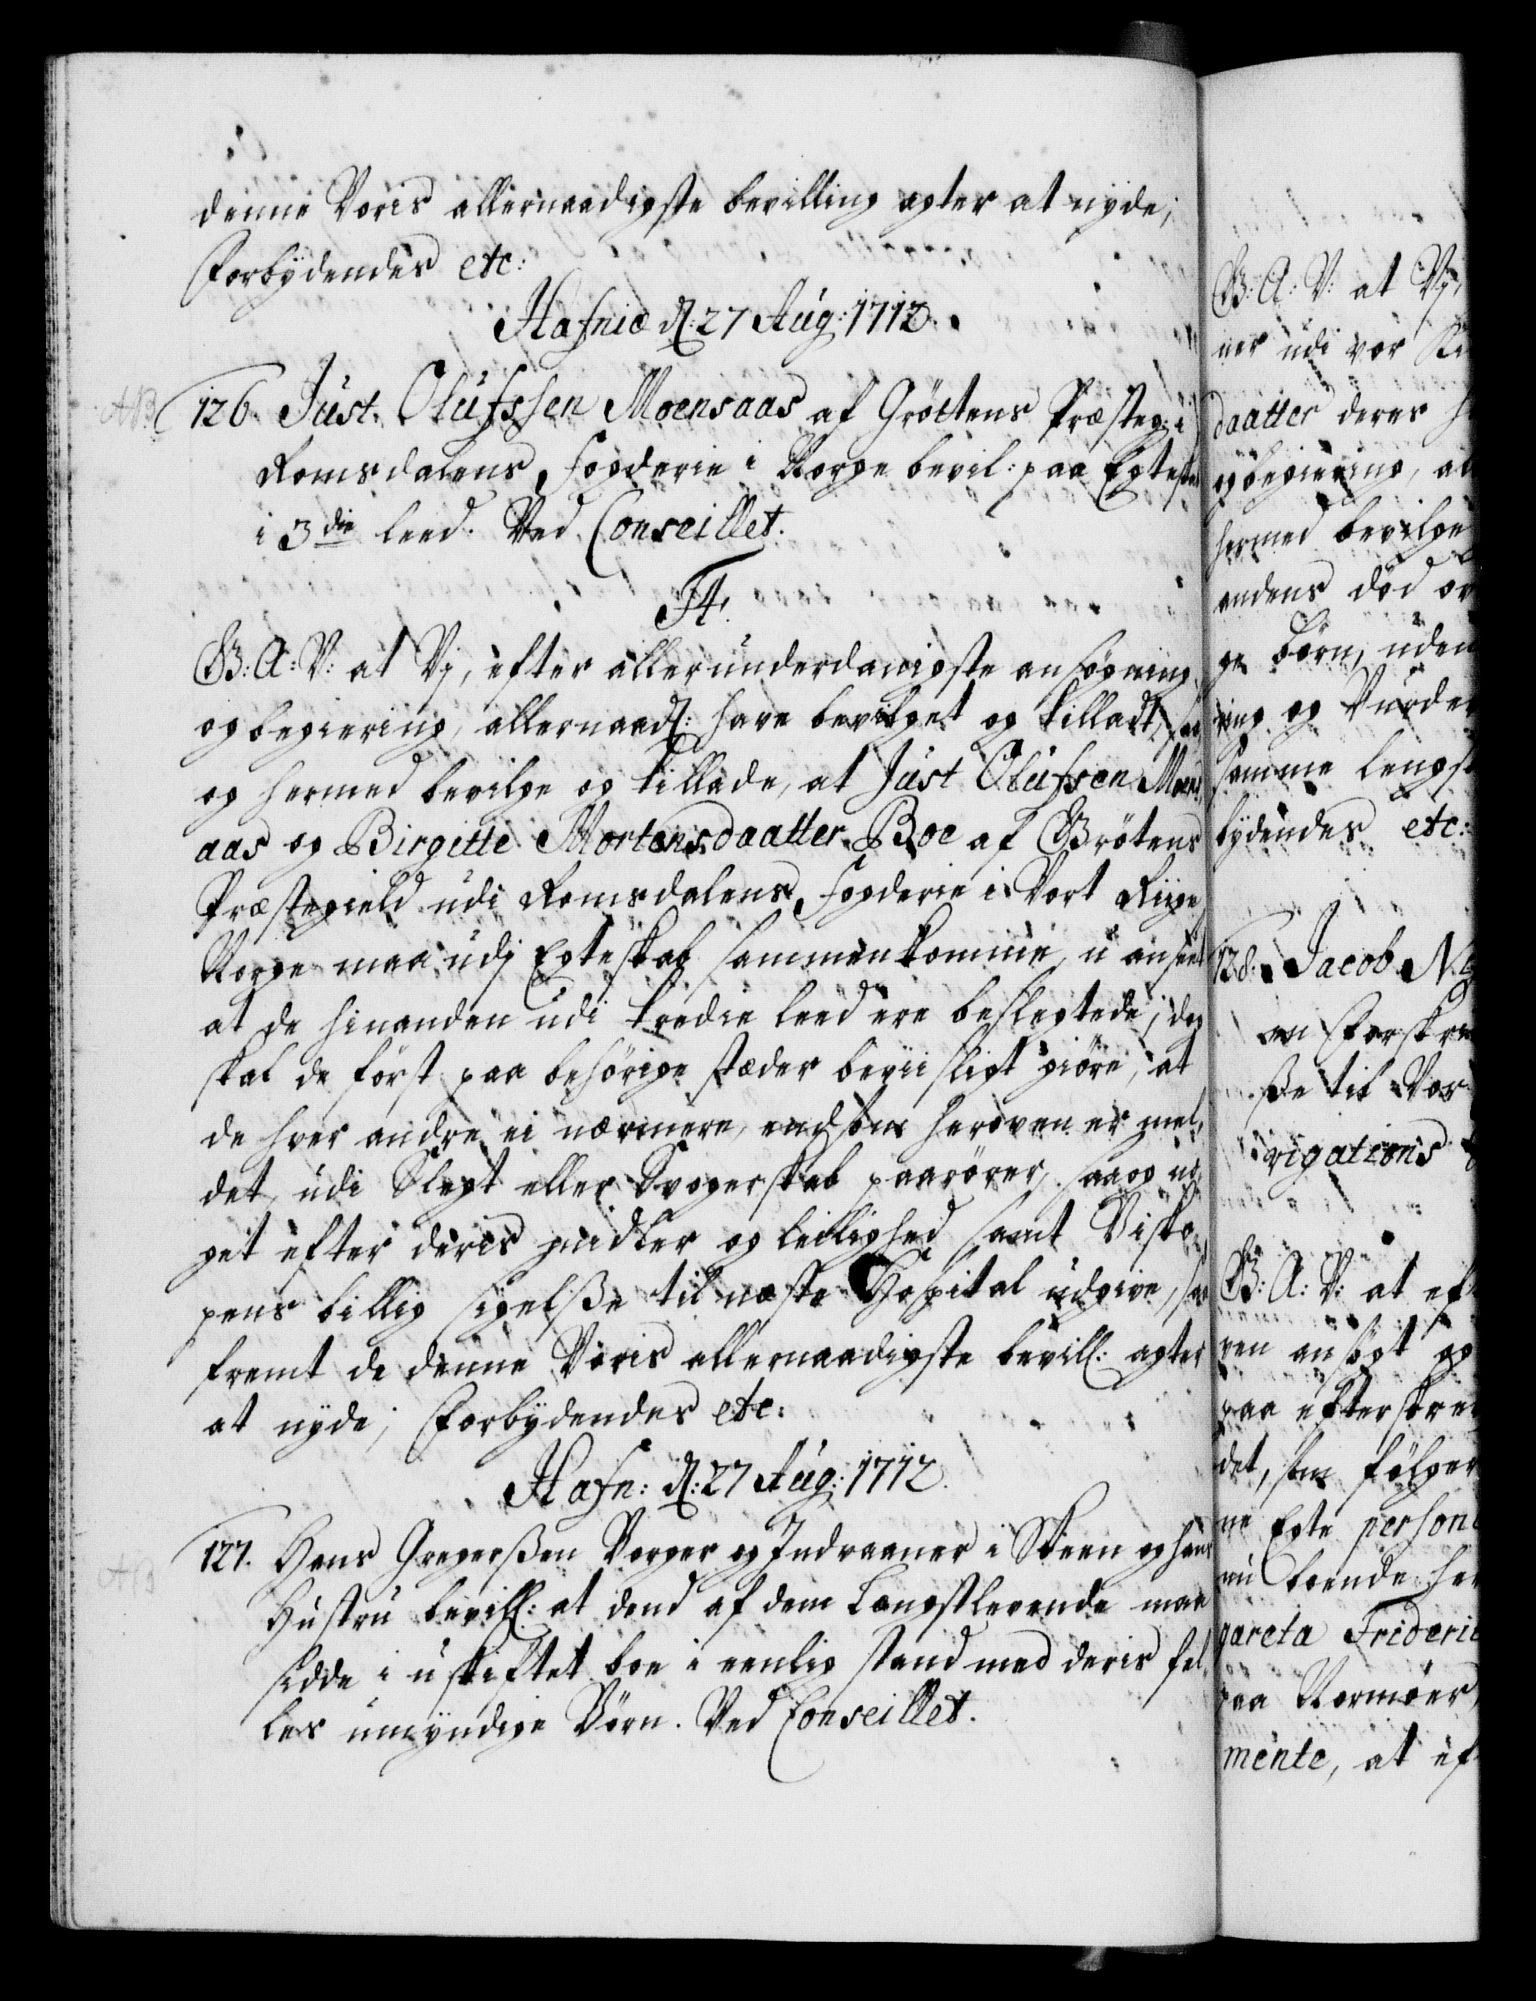 denne Voris allernaadigste bevilling agter at nyde;
Forbydendes etc:
Hafniæ d: 27 Aug: 1712.
126. Just Olufssen Moensaas af Gröttens Præsteg: i
Romsdalens Fogderie i Norge bevil: paa Egteskab
i 3die leed. Ved Conseillet.
F4.
G: A: V: at Vj, efter allerunderdanigste ansøgning
og begiering, allernaad: have bevilget og tilladt, saa
og hermed bevilge og tillade, at Just Olufsen Moens
aas og Birgitte Mortensdaatter Boe af Grötens
Præstegield udi Romsdalens Fogderie i Vort Rige
Norge maa udj Egteskab sammenkomme, u anseet
at de hinanden udi tredie leed ere beslegtede; dog
skal de först paa behörige stæder beviisligt giöre, at
de hver andre ei nærmere, end som heroven er mel,
det, udi Slegt eller Svogerskab paarörer, saa og no,
get efter deris midler og leilighed samt Bisko,
pens billig sigelsße til næste Hospital udgive, saa
fremt de denne Voris allernaadigste bevill: agter
at nyde; Forbydendes etc:
Hafn: d: 27 Aug: 1712.
127. Hans Gregerßen Borger og Indvaaner i Skeen og hans
Hustru bevill: at dend af dem Længstlevende maa
sidde i uskiftet boe i eenlig stand med deris fel,
les umyndige Börn. Ved Conseillet.
G: A: V: at Vj,
ner udi vor
daatter deres
og begiering, al
hermed bevilge
andens död
ge börn, uden
ring og Vurder
samme lengst
bydendes etc:
128. Jacob
en Forskre
ße til Vor
vigations
G: A: V: at ef
ren ansögt og
paa efterskre
det, som fölger
ne Egte person
nu boende her
gareta Frideric
paa Normöer,
mente, at ef